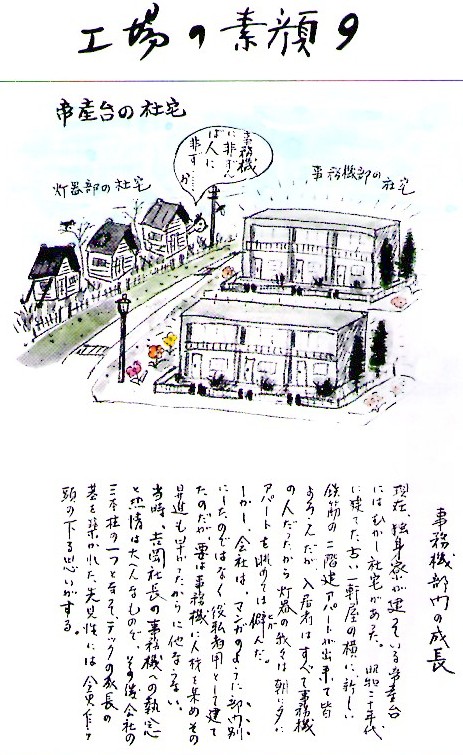 工場の素顔9
帝産台の社宅
事務機
に非ずん
ば人に
非ずか…
灯器部の社宅
事務機部の社宅
事務機部門の成長
現在、独身寮が建っている帝産台
にはむかし社宅があった。昭和二十年代
に建てた古い一軒屋の横に、新しい
鉄筋の二階建アパートが出来て皆
よろこんだが、入居者はすべて事務機
の人だったから灯器の我々は朝に夕に
アパートを眺めては僻んだ。
しかし、会社は、マンガのように部門別
にしたのではなく役転者用として建て
たのだが、要は事務機に人材を集めその
昇進も早かったからに他ならない。
当時、吉岡社長の事務機への執念
と熱情は大へんなもので、その後会社の
三本柱の一つとなって、テックの成長の
基を築かれた先見性には今更乍ら
頭の下る思いがする。